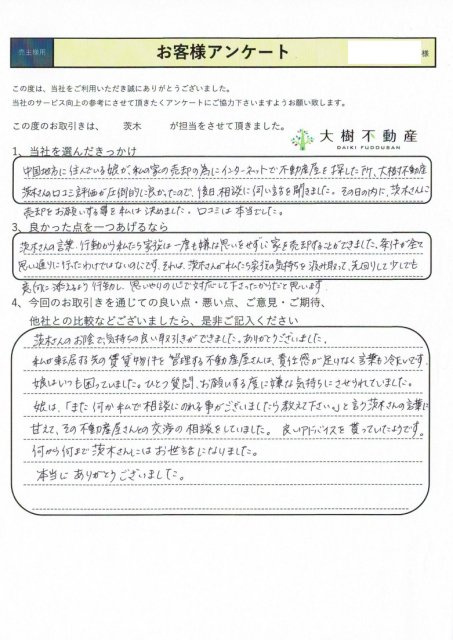 売主様用
お客様アンケート
様
この度は、当社をご利用いただき誠にありがとうございました。
当社のサービス向上の参考にさせて頂きたくアンケートにご協力下さいますようお願い致します。
この度のお取引きは、 茨木 が担当をさせて頂きました。
大樹不動産
DAIKI FUDOUSAN
1、当社を選んだきっかけ
中国地方に住んでいる娘が、私の家の売却の為にインターネットで不動産屋を探した所、大樹不動産
茨木さんの口コミ評価が圧倒的に良かったので、後日相談に伺い話を聞きました。その日の内に、茨木さんに
売却をお願いする事を私は決めました。口コミは本当でした。
3、良かった点を一つあげるなら
茨木さんの言葉・行動から私たち家族は一度も嫌な思いをせずに家を売却することができました。条件が全て
思い通りに行ったわけではないのにです。それは、茨木さんが私たち家族の気持ちを汲み取って、先回りして少しでも
意向に添えるよう行動し、思いやりの心で対応して下さったからだと思います。
4、今回のお取引きを通じての良い点・悪い点、ご意見・ご期待、
他社との比較などございましたら、是非ご記入ください
茨木さんのお陰で、気持ちの良い取引きができました。ありがとうございました。
私が転居する先の賃貸物件を管理する不動産屋さんは、責任感が足りなく言葉も冷たいです。
娘はいつも困っていました。ひとつ質問、お願いする度に嫌な気持ちにさせられていました。
娘は、「また何か私で相談にのれる事がございましたら教えて下さい。」と言う茨木さんの言葉に
甘えて、その不動産屋さんとの交渉の相談をしていました。良いアドバイスを貰っていたようです。
何から何まで茨木さんにはお世話になりました。
本当にありがとうございました。